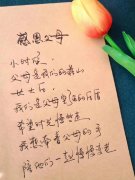 感恩父母
小时候，
父母是我们的靠山
长大后，
我们是父母坚强的后盾
希望时光慢些走
我想牵着父母的手
陪他们一起慢慢变老